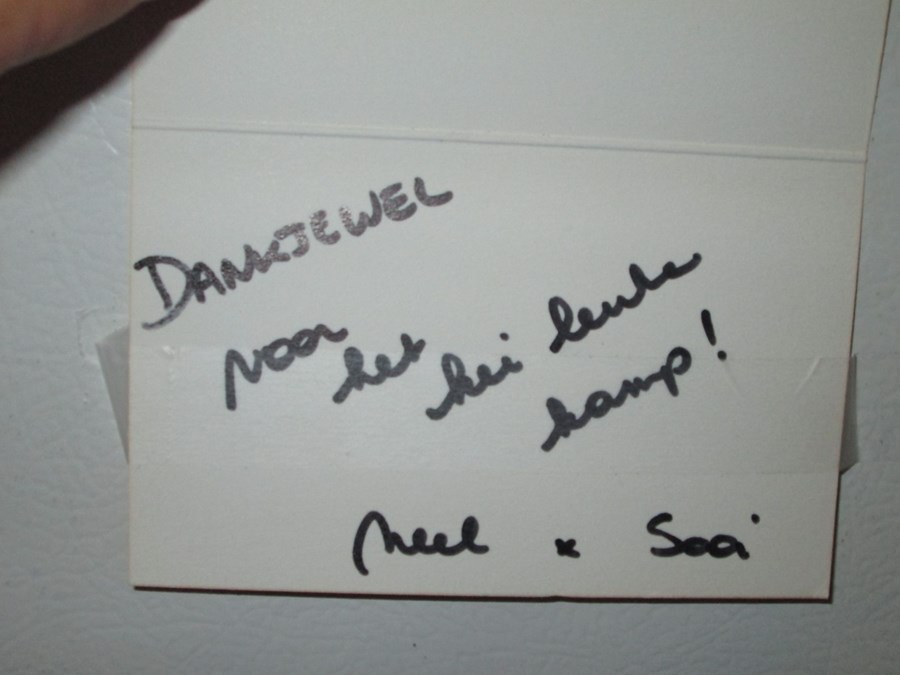 DANKJEWEL
voor het kei leuke
kamp!
Neel x Sooi